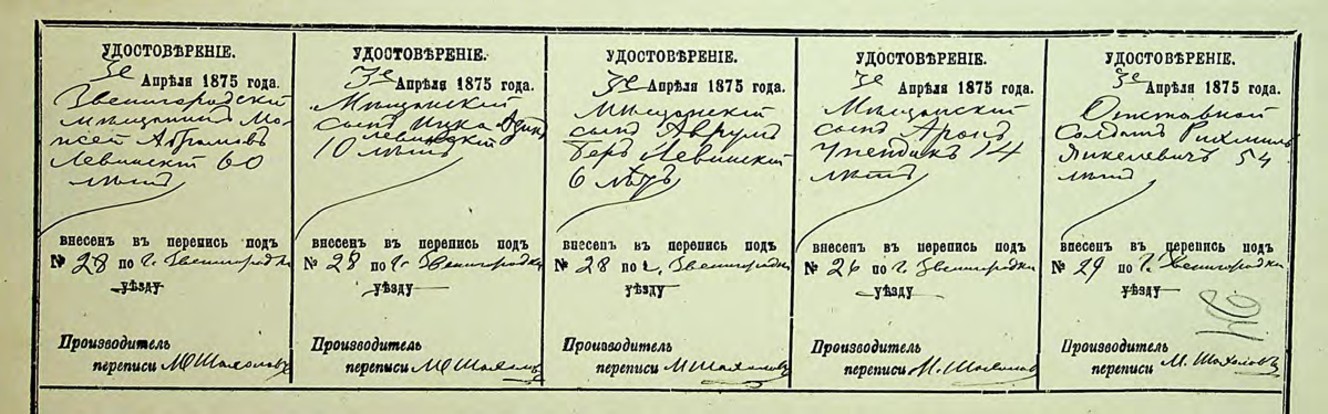 УДОСТОВѢРЕНІЕ.
3е Апрѣля 1875 года.
Звенигородскій
мѣщанинъ Мо-
исей Абрамовъ
Левинскій 60
лѣтъ
внесенъ въ перепись подъ
№ 28 по г. Звенигородки
уѣзду
Производитель
переписи М Шахоловъ
УДОСТОВѢРЕНІЕ.
3е Апрѣля 1875 года.
Мѣщанскій
сынъ Ицка
Левинскій
10 лѣтъ
внесенъ въ перепись подъ
№ 28 по г. Звенигородки
уѣзду
Производитель
переписи М Шахоловъ
УДОСТОВѢРЕНІЕ.
3е Апрѣля 1875 года.
Мѣщанскій
сынъ Аврумъ
Беръ Левинскій
6 лѣтъ
внесенъ въ перепись подъ
№ 28 по г. Звенигородки
уѣзду
Производитель
переписи М Шахоловъ
УДОСТОВѢРЕНІЕ.
3е Апрѣля 1875 года.
Мѣщанскій
сынъ Аронъ
14
лѣтъ
внесенъ въ перепись подъ
№ 26 по г. Звенигородки
уѣзду
Производитель
переписи М. Шахоловъ
УДОСТОВѢРЕНІЕ.
3е Апрѣля 1875 года.
Отставной
Солдатъ
Янкелевичъ 54
лѣтъ
внесенъ въ перепись подъ
№ 29 по г. Звенигородки
уѣзду
Производитель
переписи М. Шахоловъ